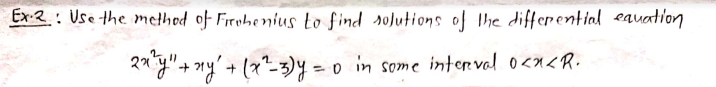 Ex·2 : Use the method of Frobenius to find solutions of the differential equation
2x²y" + xy' + (x²-3)y = 0 in some interval 0<x<R.